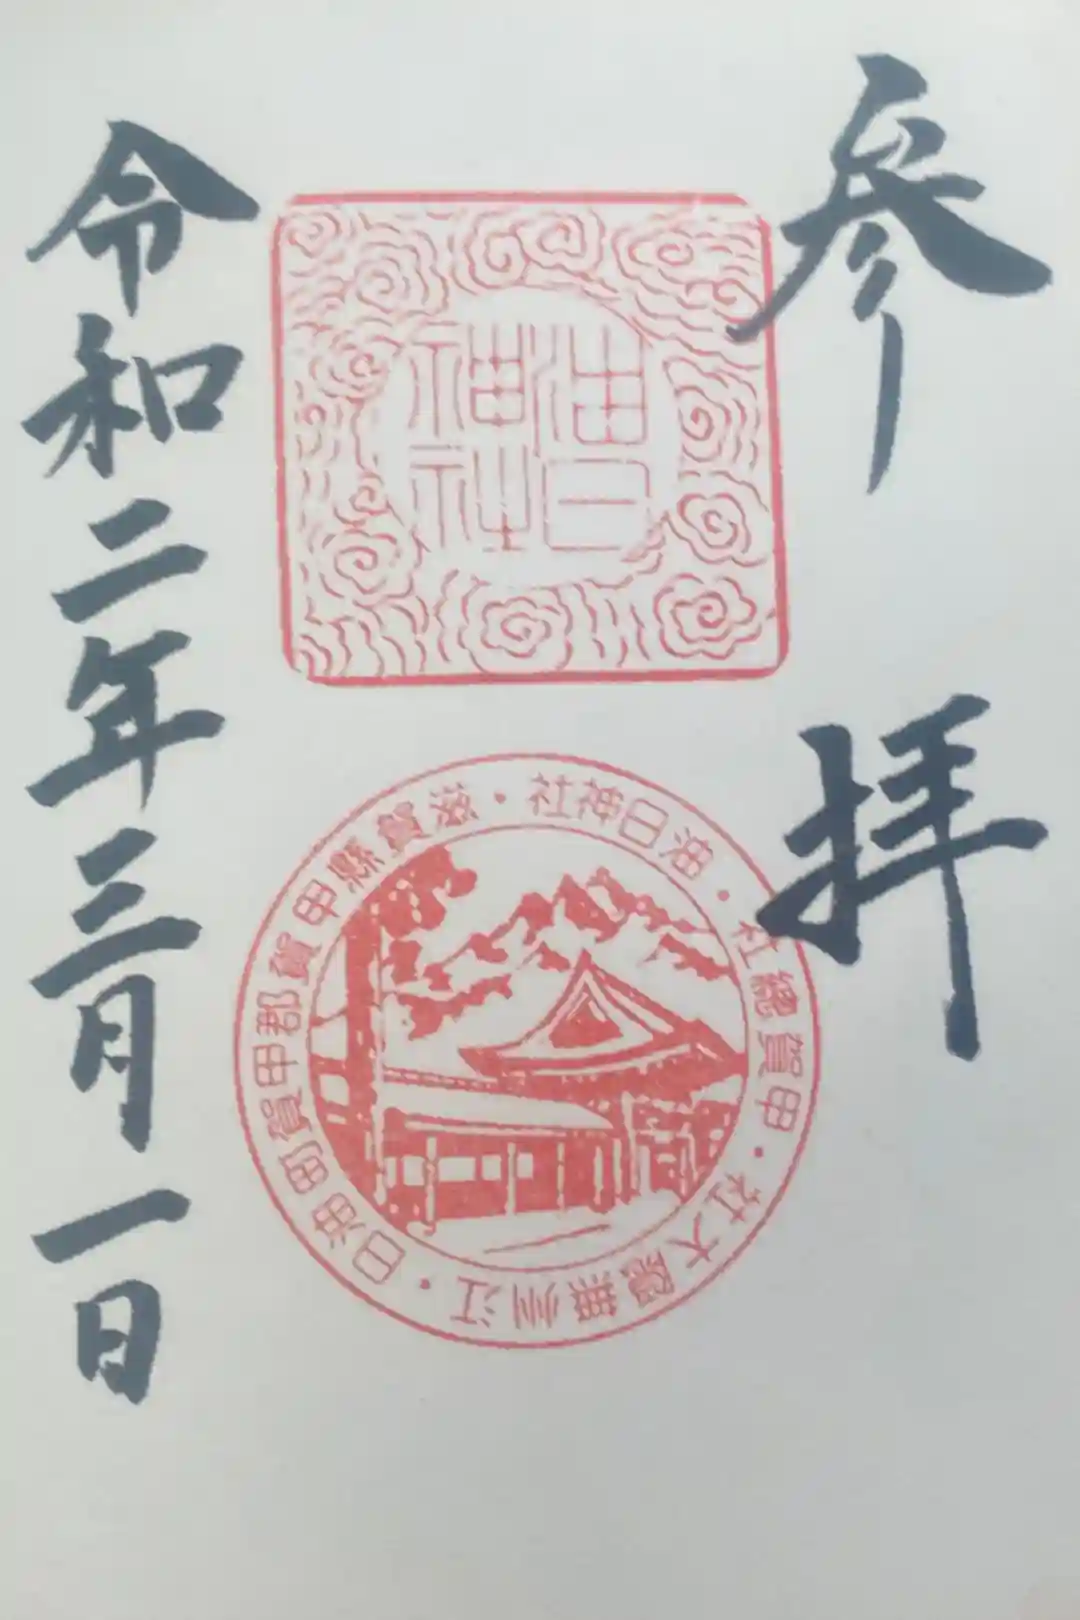 参拝
油日
神社
油日神社・滋賀縣甲賀郡甲賀町油日・江州無隠大社・甲賀總社・
令和二年三月一日